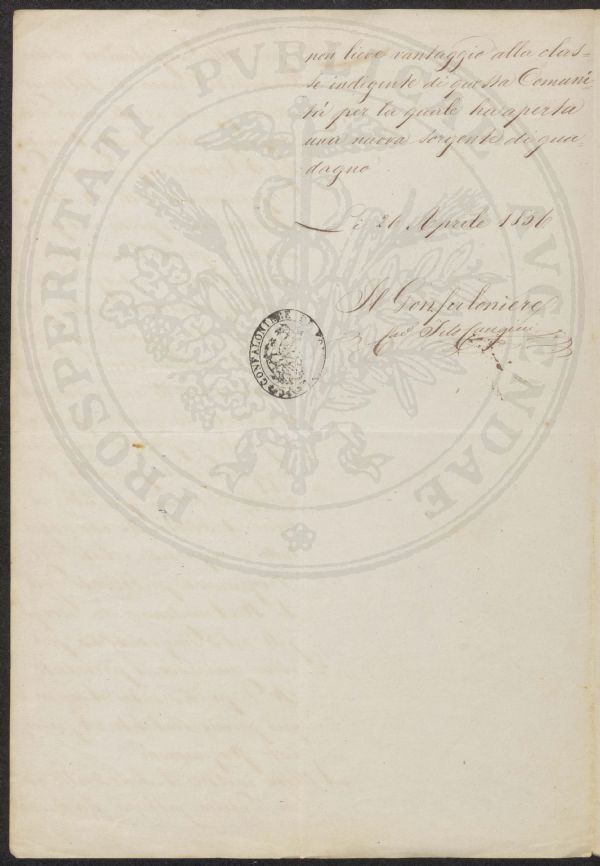 non lieve vantaggio alla clas-
se indigente di questa Comuni-
tà per la quale ha aperta
una nuova sorgente di gua-
dagno
Li 26 Aprile 1856
Il Gonfaloniere
PROSPERITATI PVBLICAE AVGENDAE